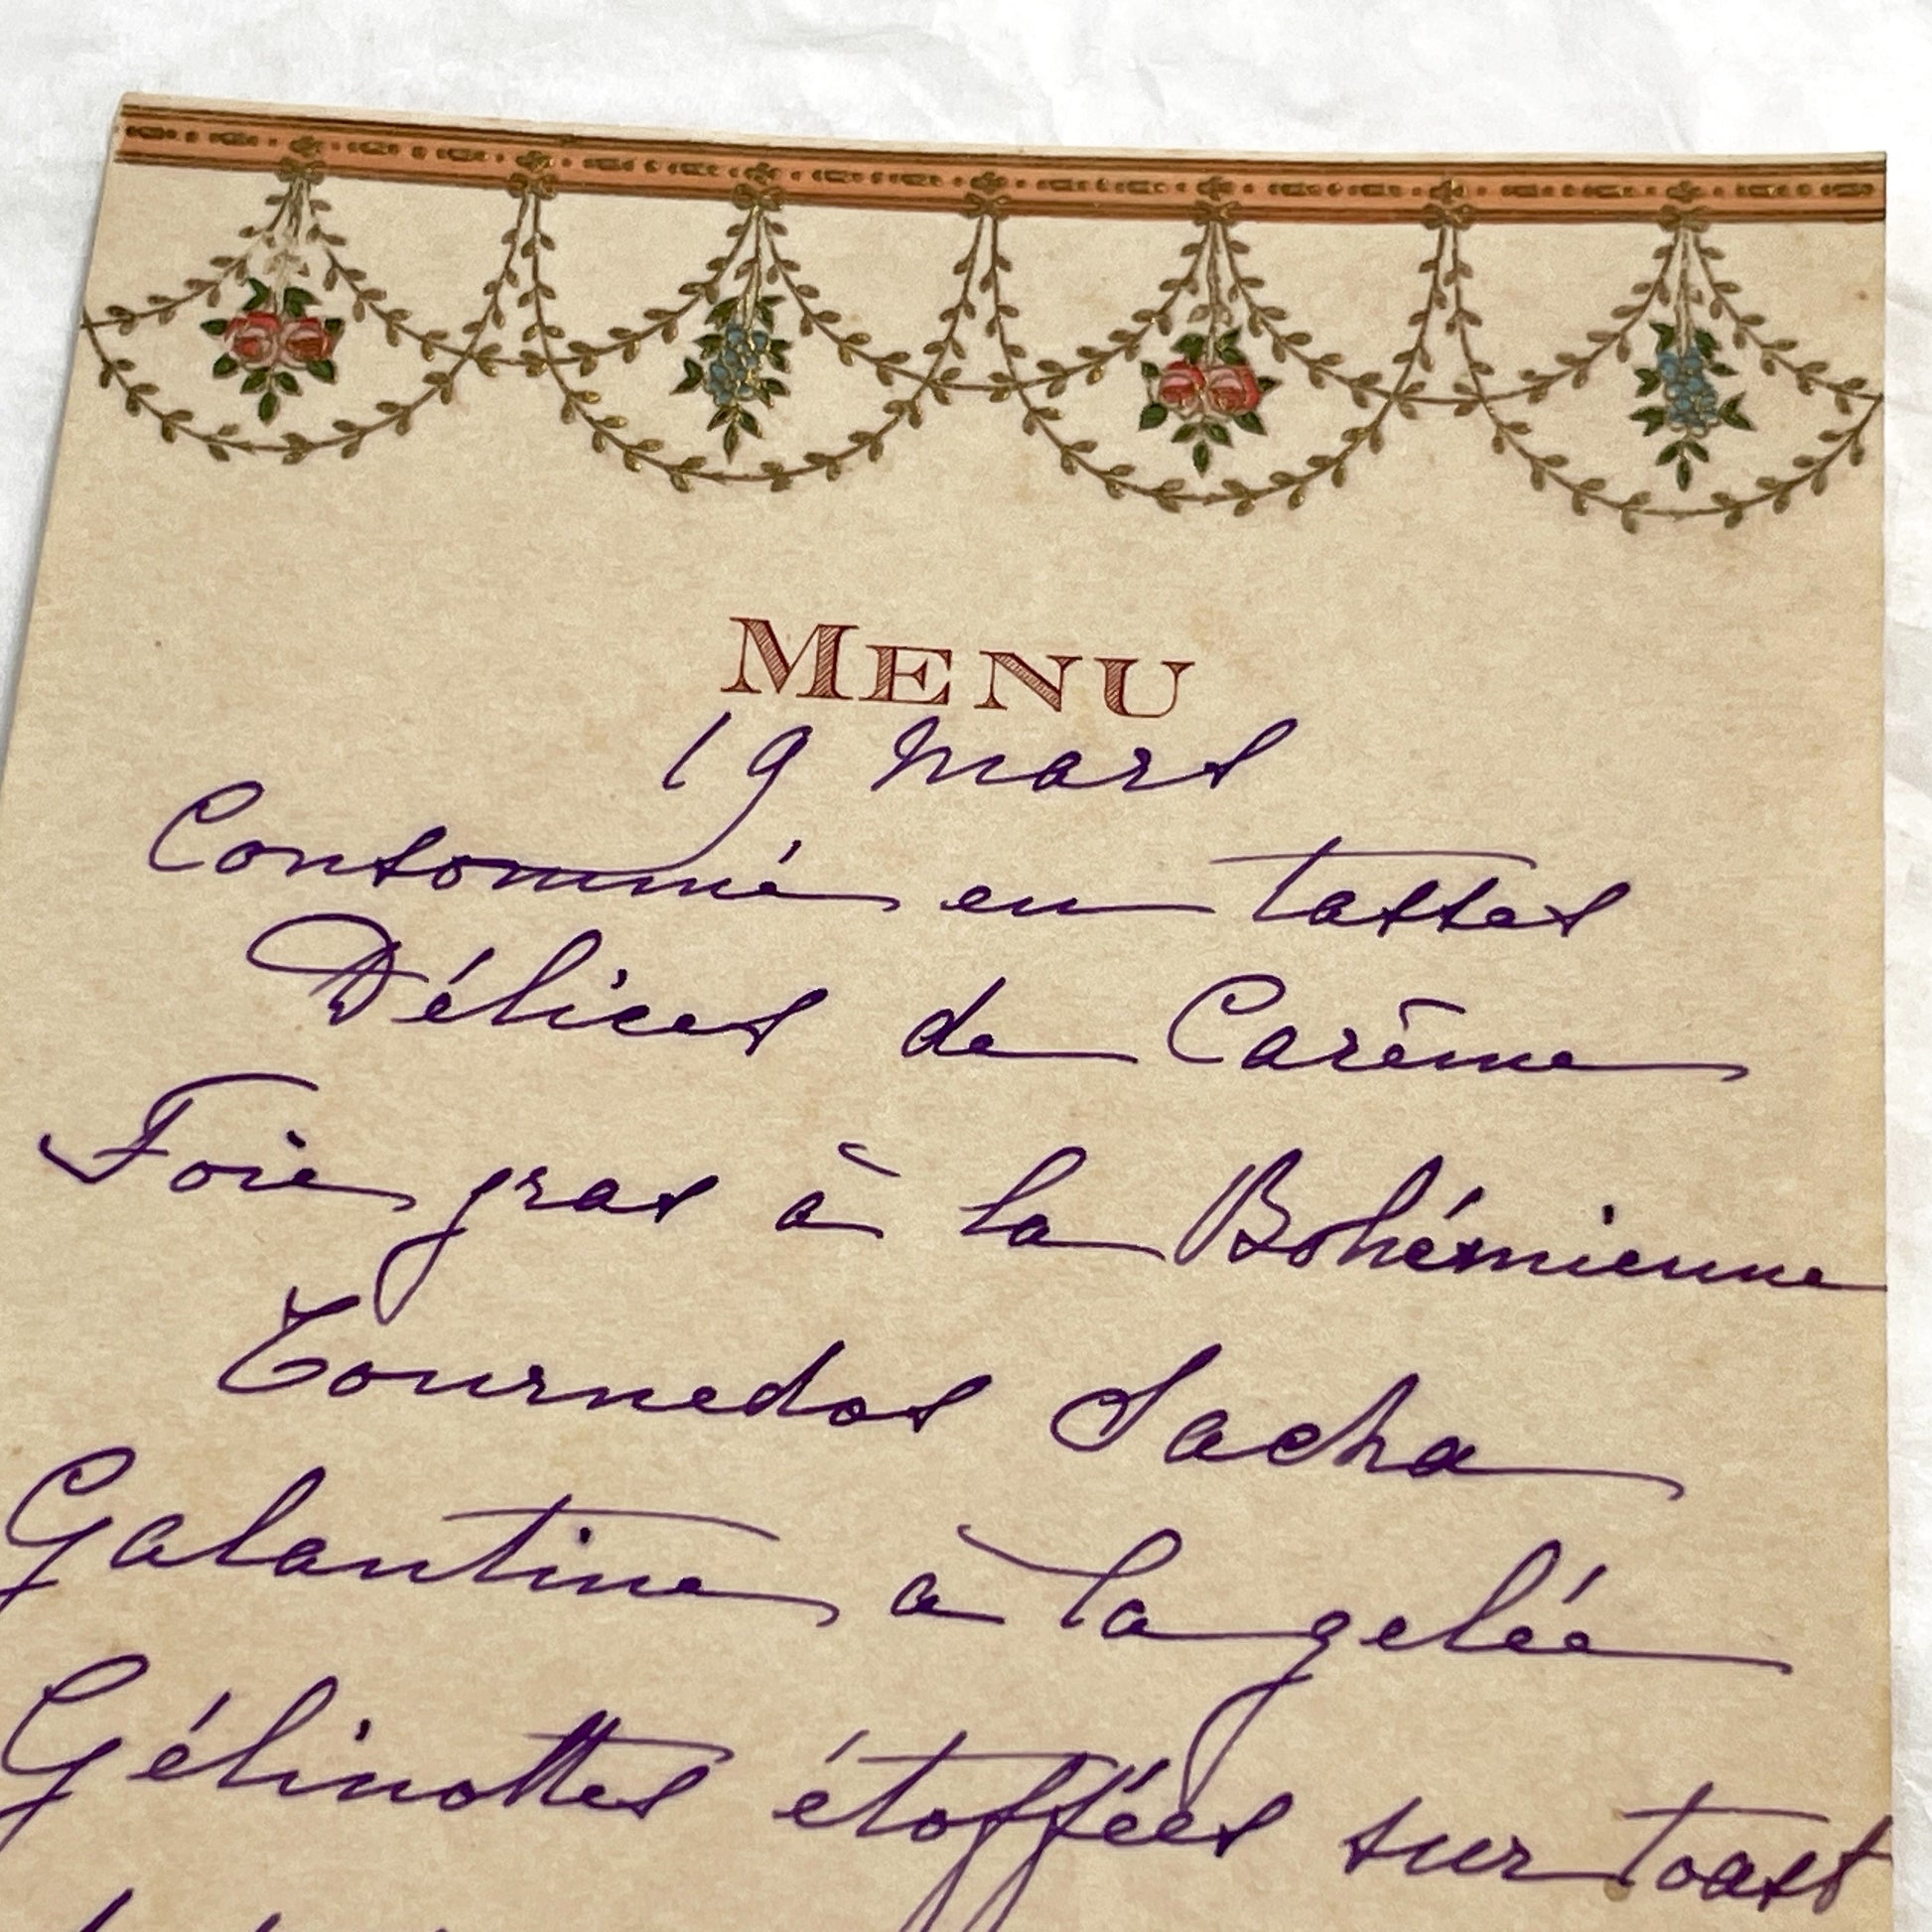 MENU
19 Mars
Consommé en tasses
Délices de Carême
Foie gras à la Bohémienne
Tournedos Sacha
Galantine à la gelée
Gélinottes étoffées sur toast